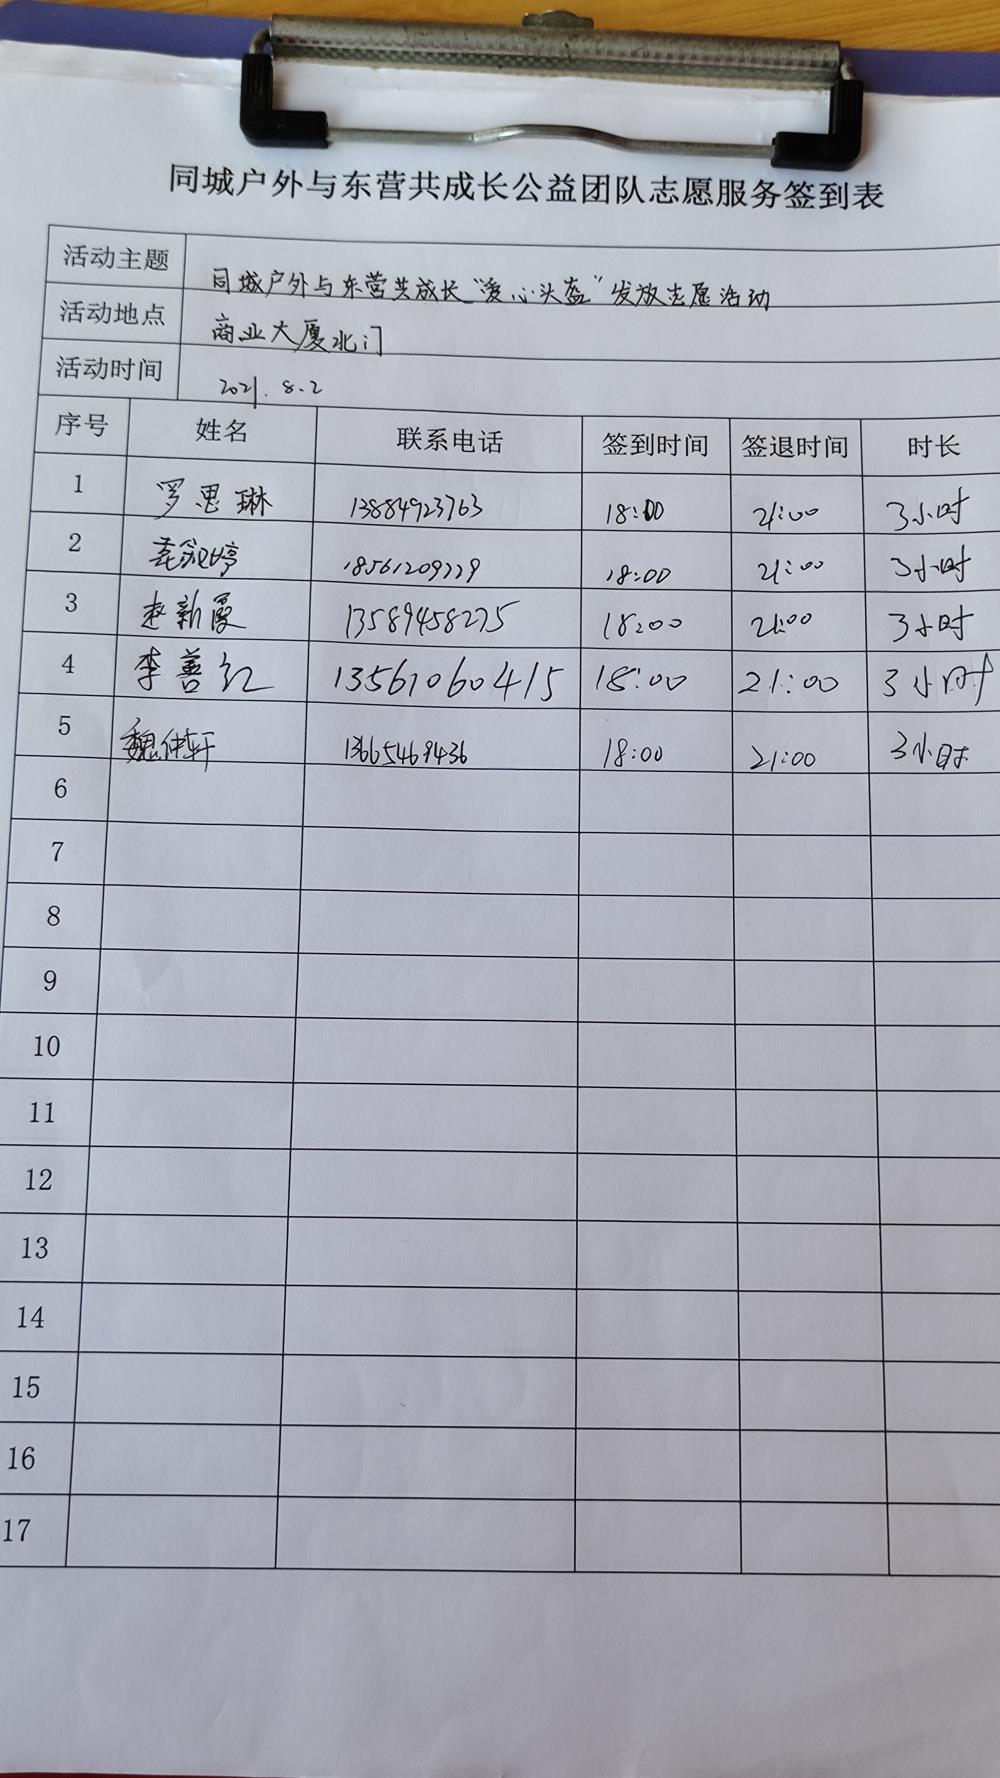 同城户外与东营共成长公益团队志愿服务签到表
活动主题 同城户外与东营共成长"爱心头盔"发放志愿活动
活动地点 商业大厦北门
活动时间 2021.8.2
序号 姓名 联系电话 签到时间 签退时间 时长
1 罗思琳 13884923763 18:00 21:00 3小时
2 18561209779 18:00 21:00 3小时
3 赵新蔓 13589458275 18:00 21:00 3小时
4 李善红 13561060415 18:00 21:00 3小时
5 魏仲轩 13665469436 18:00 21:00 3小时
6
7
8
9
10
11
12
13
14
15
16
17